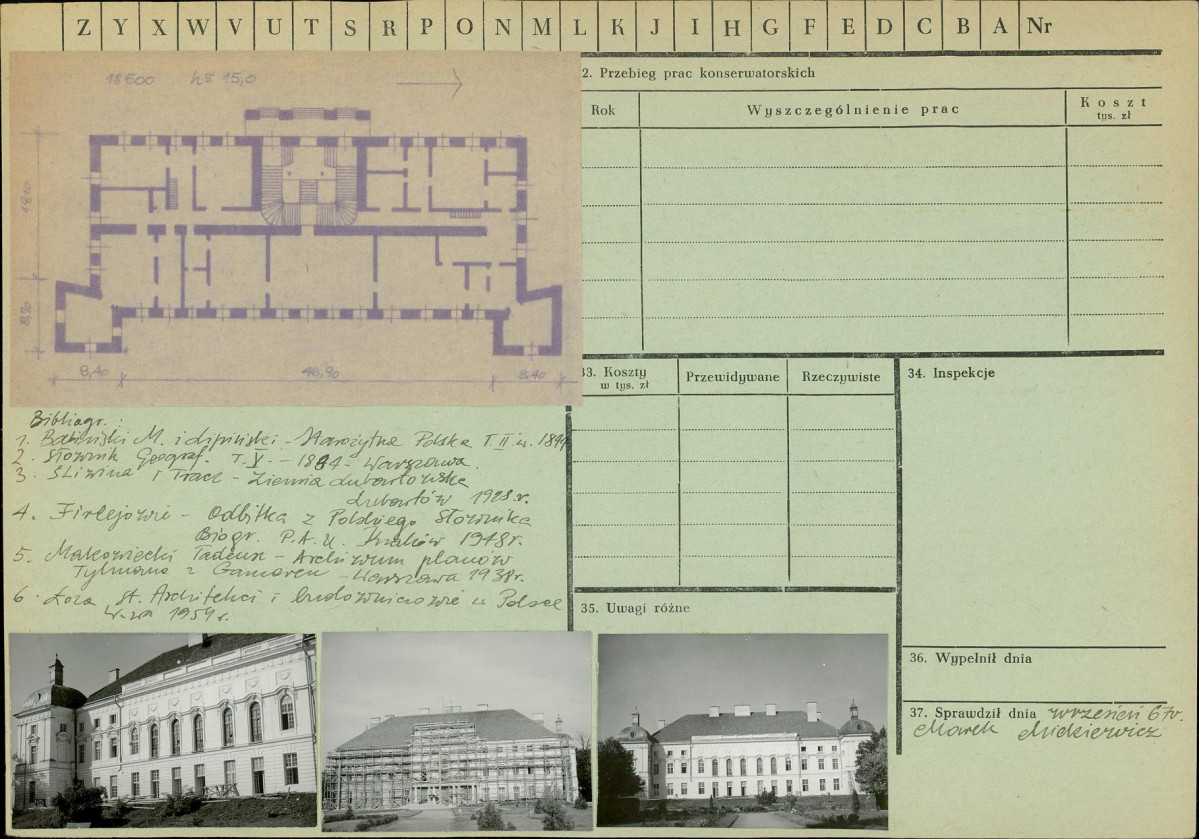 Z Y X W V U T S R P O N M L K J I H G F E D C B A Nr
18500 h= 15,0
18,10
8,70
8,40 46,90 8,40
2. Przebieg prac konserwatorskich
Rok Wyszczególnienie prac Koszt
tys. zł
33. Koszty
w tys. zł
Przewidywane Rzeczywiste
34. Inspekcje
Bibliogr.:
1. Baliński M. i Lipiński - Starożytna Polska T. II w.
2. Słownik Geograf. T. V - 1884 - Warszawa.
3. Śliwina i Tracz - Ziemia Lubartowska
Lubartów 1928 r.
4. Firlejowie - Odbitka z Polskiego Słownika
Biogr. P.A.U. Kraków 1948 r.
5. Makowiecki Tadeusz - Archiwum planów
Tylmana z Gameren - Warszawa 1938 r.
6. Łoza St. Architekci i budowniczowie w Polsce
W-wa 1954 r.
35. Uwagi różne
36. Wypełnił dnia
37. Sprawdził dnia wrzesień 67r.
Marek Mickiewicz